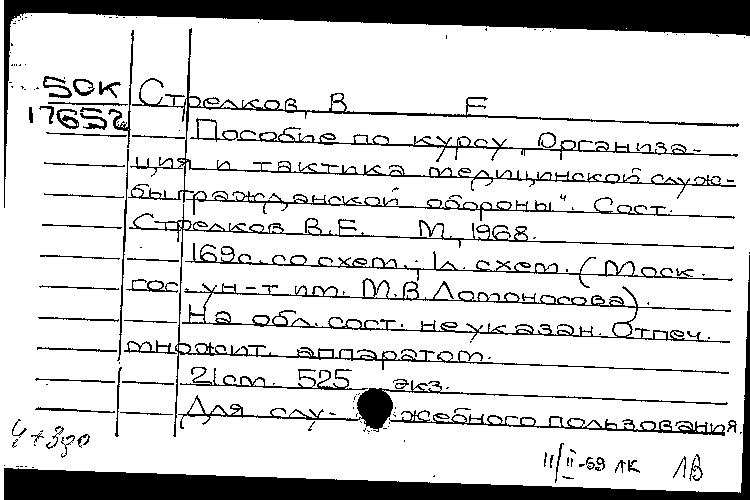 50К Стрелков, В Е
17652
Пособие по курсу „Организа-
ция и тактика медицинской служ-
бы гражданской обороны". Сост.
Стрелков В.Е. М., 1968.
169с. со схем.; 1л. схем. (Моск.
гос. ун-т им. М.В. Ломоносова).
На обл. сост. не указан. Отпеч.
множит. аппаратом.
21см. 525 экз.
Для слу- жебного пользования.
11/II-69 ЛК ЛВ